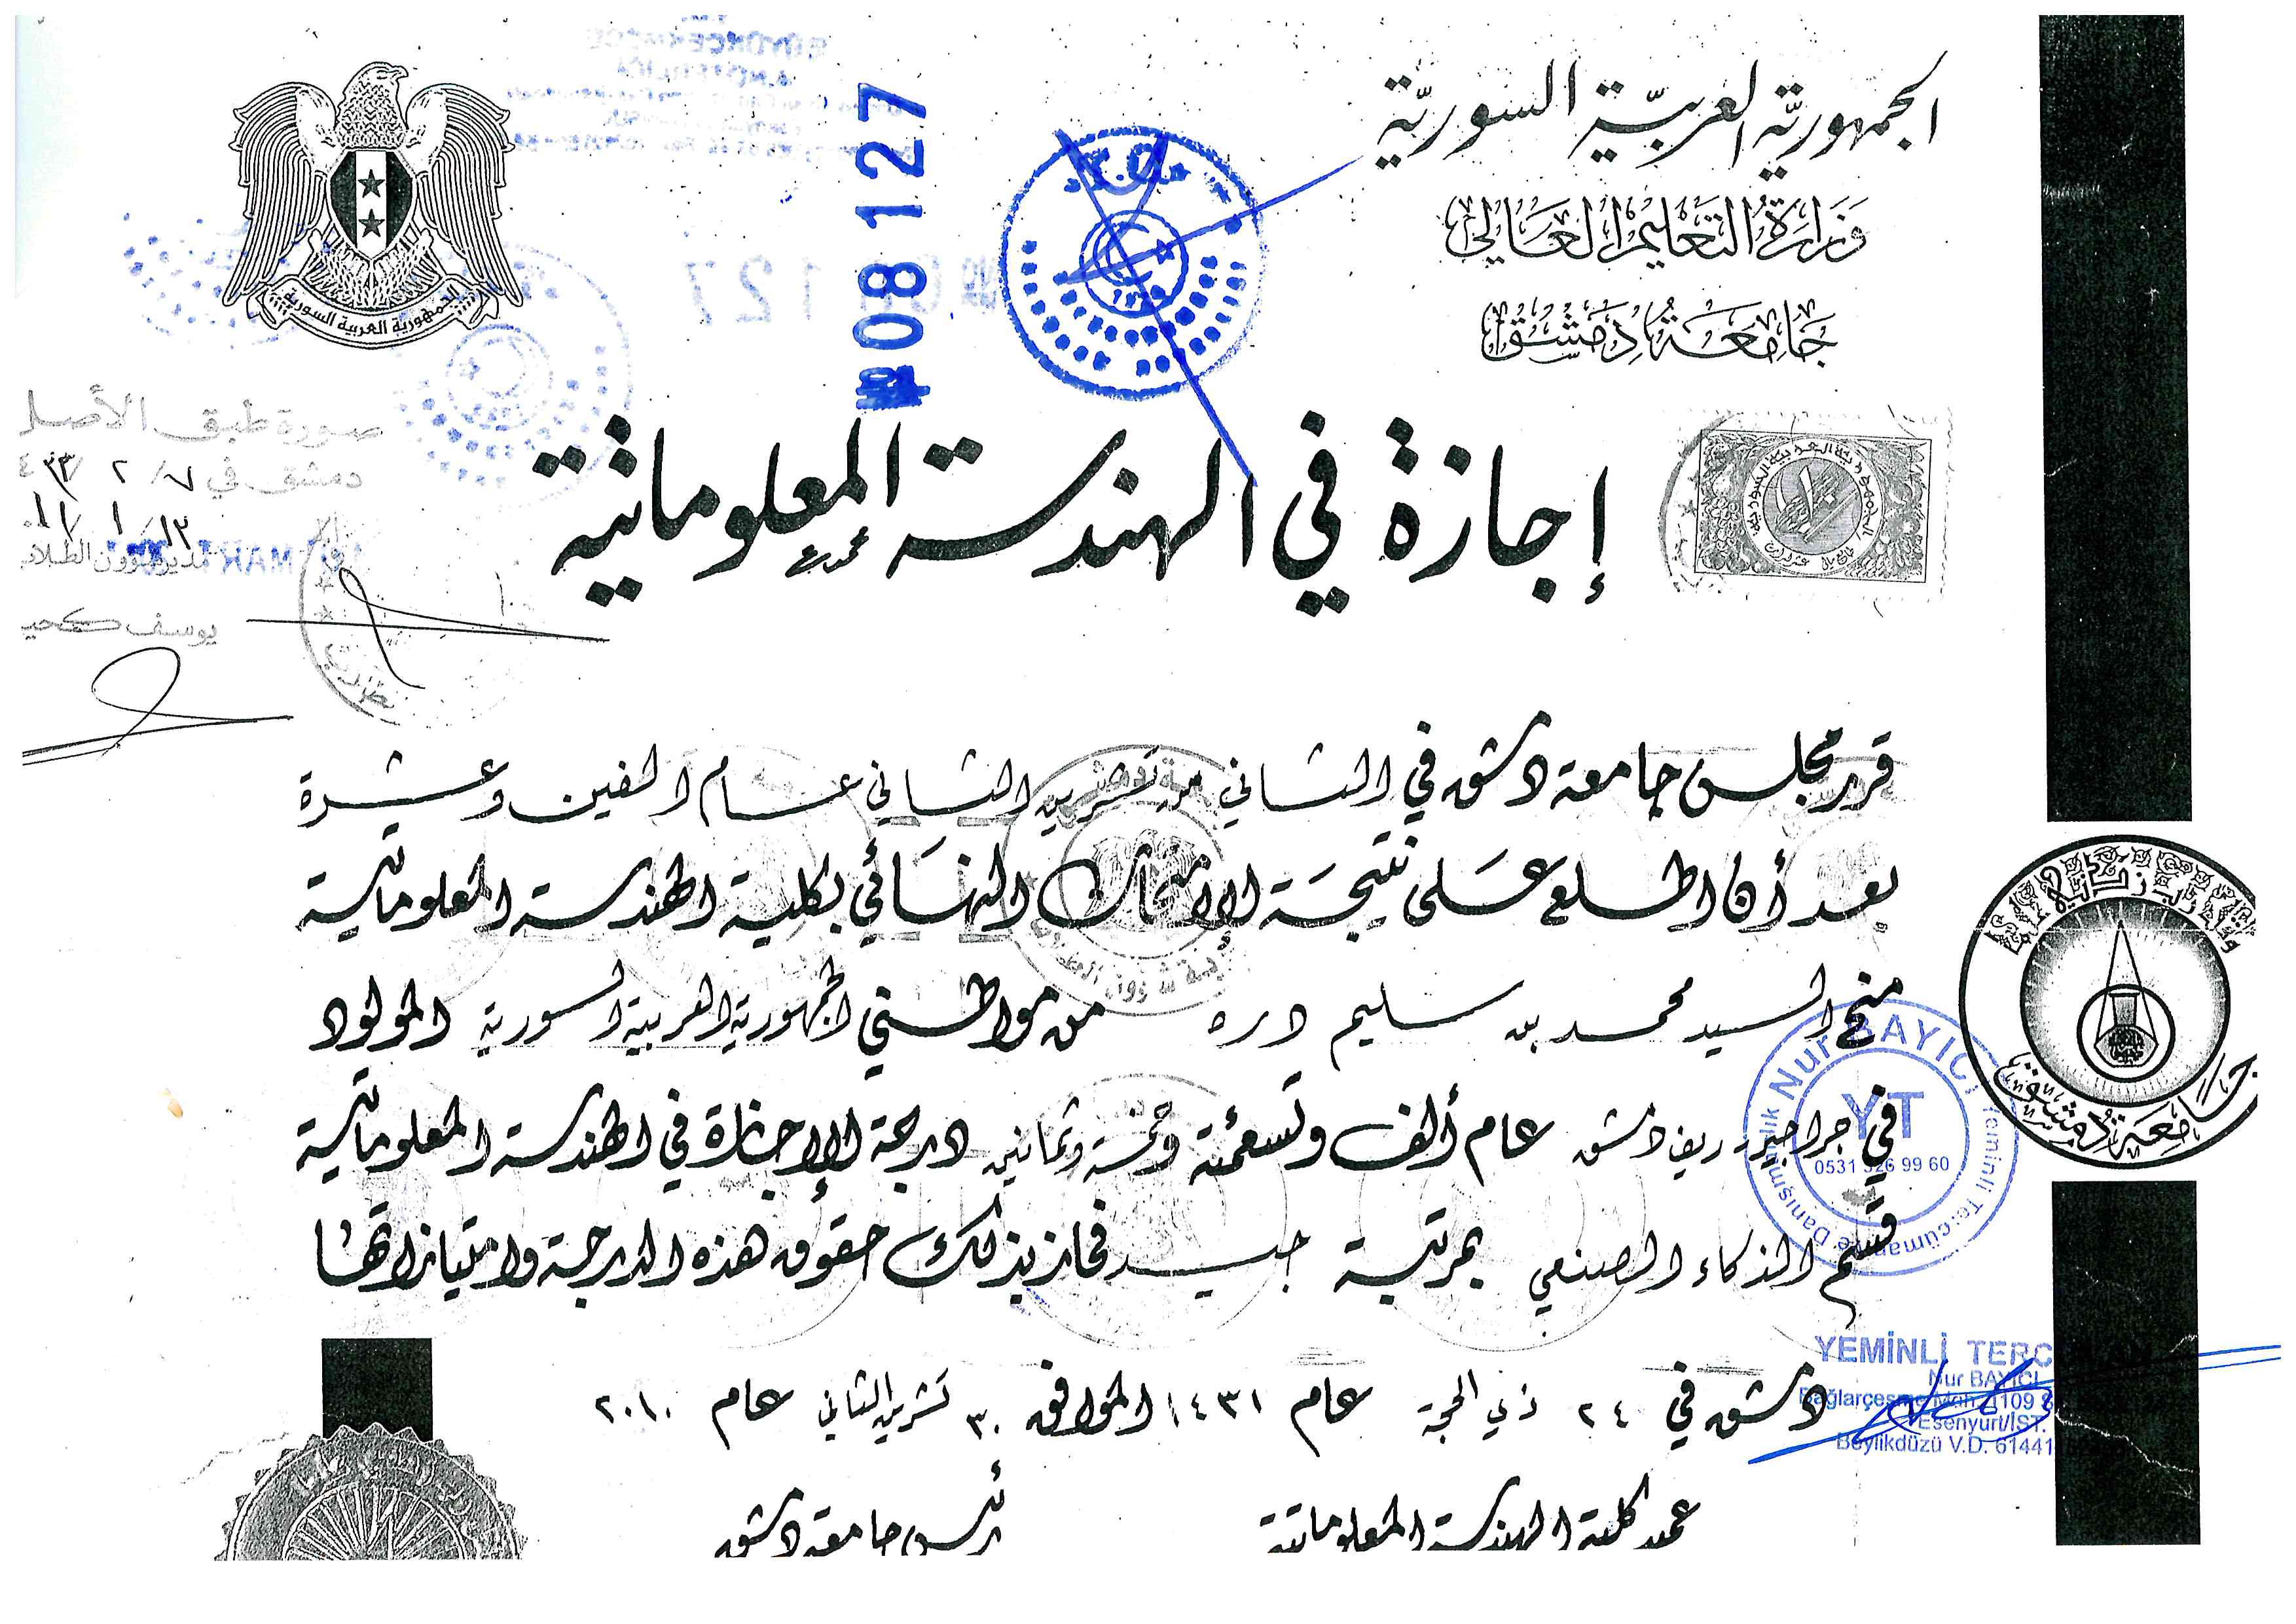 الجمهوريّة العربيّة السوريّة
وَزارَةُ التعَليم العَالي
جَامِعَة دِمَشق
الجمهورية العربية السورية
№08127
صورة طبق الأصل
دمشق في
مدير شؤون الطلاب
يوسف
إجازة في الهندسة المعلوماتية
قرر مجلس جامعة دمشق في الثاني من تشرين الثاني عام الفين وعشرة
بعد أن اطلع على نتيجة الإمتحان النهائي بكلية الهندسة المعلوماتية
منح السيد محمد بن سليم دره من مواطني الجمهورية العربية السورية المولود
في جراجير ريف دمشق عام ألف وتسعمئة وخمسة وثمانين درجة الإجازة في الهندسة المعلوماتية
قسم الذكاء الصنعي بمرتبة جيد فحاز بذلك حقوق هذه الدرجة وامتيازاتها
دمشق في ٢٤ ذي الحجة عام ١٤٣١ الموافق ٣٠ تشرين الثاني عام ٢٠١٠
عميد كلية الهندسة المعلوماتية
رئيس جامعة دمشق
جامعة دمشق
Nur BAYICI Yeminli Tercüman Danışmanlık
YT
0531 326 99 60
YEMİNLİ TERC
Nur BAYICI
Bağlarçeşme Mah. 1109 S
Esenyurt/İST.
Beylikdüzü V.D. 61441